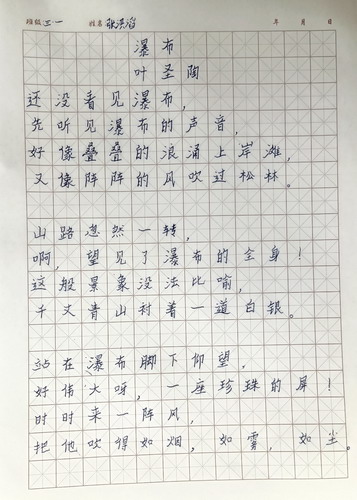 班级 三.一 姓名 张洪滔 年 月 日
瀑布
叶圣陶
还没看见瀑布,
先听见瀑布的声音,
好像叠叠的浪涌上岸滩,
又像阵阵的风吹过松林。
山路忽然一转,
啊,望见了瀑布的全身!
这般景象没法比喻,
千丈青山衬着一道白银。
站在瀑布脚下仰望,
好伟大呀,一座珍珠的屏!
时时来一阵风,
把他吹得如烟,如雾,如尘。